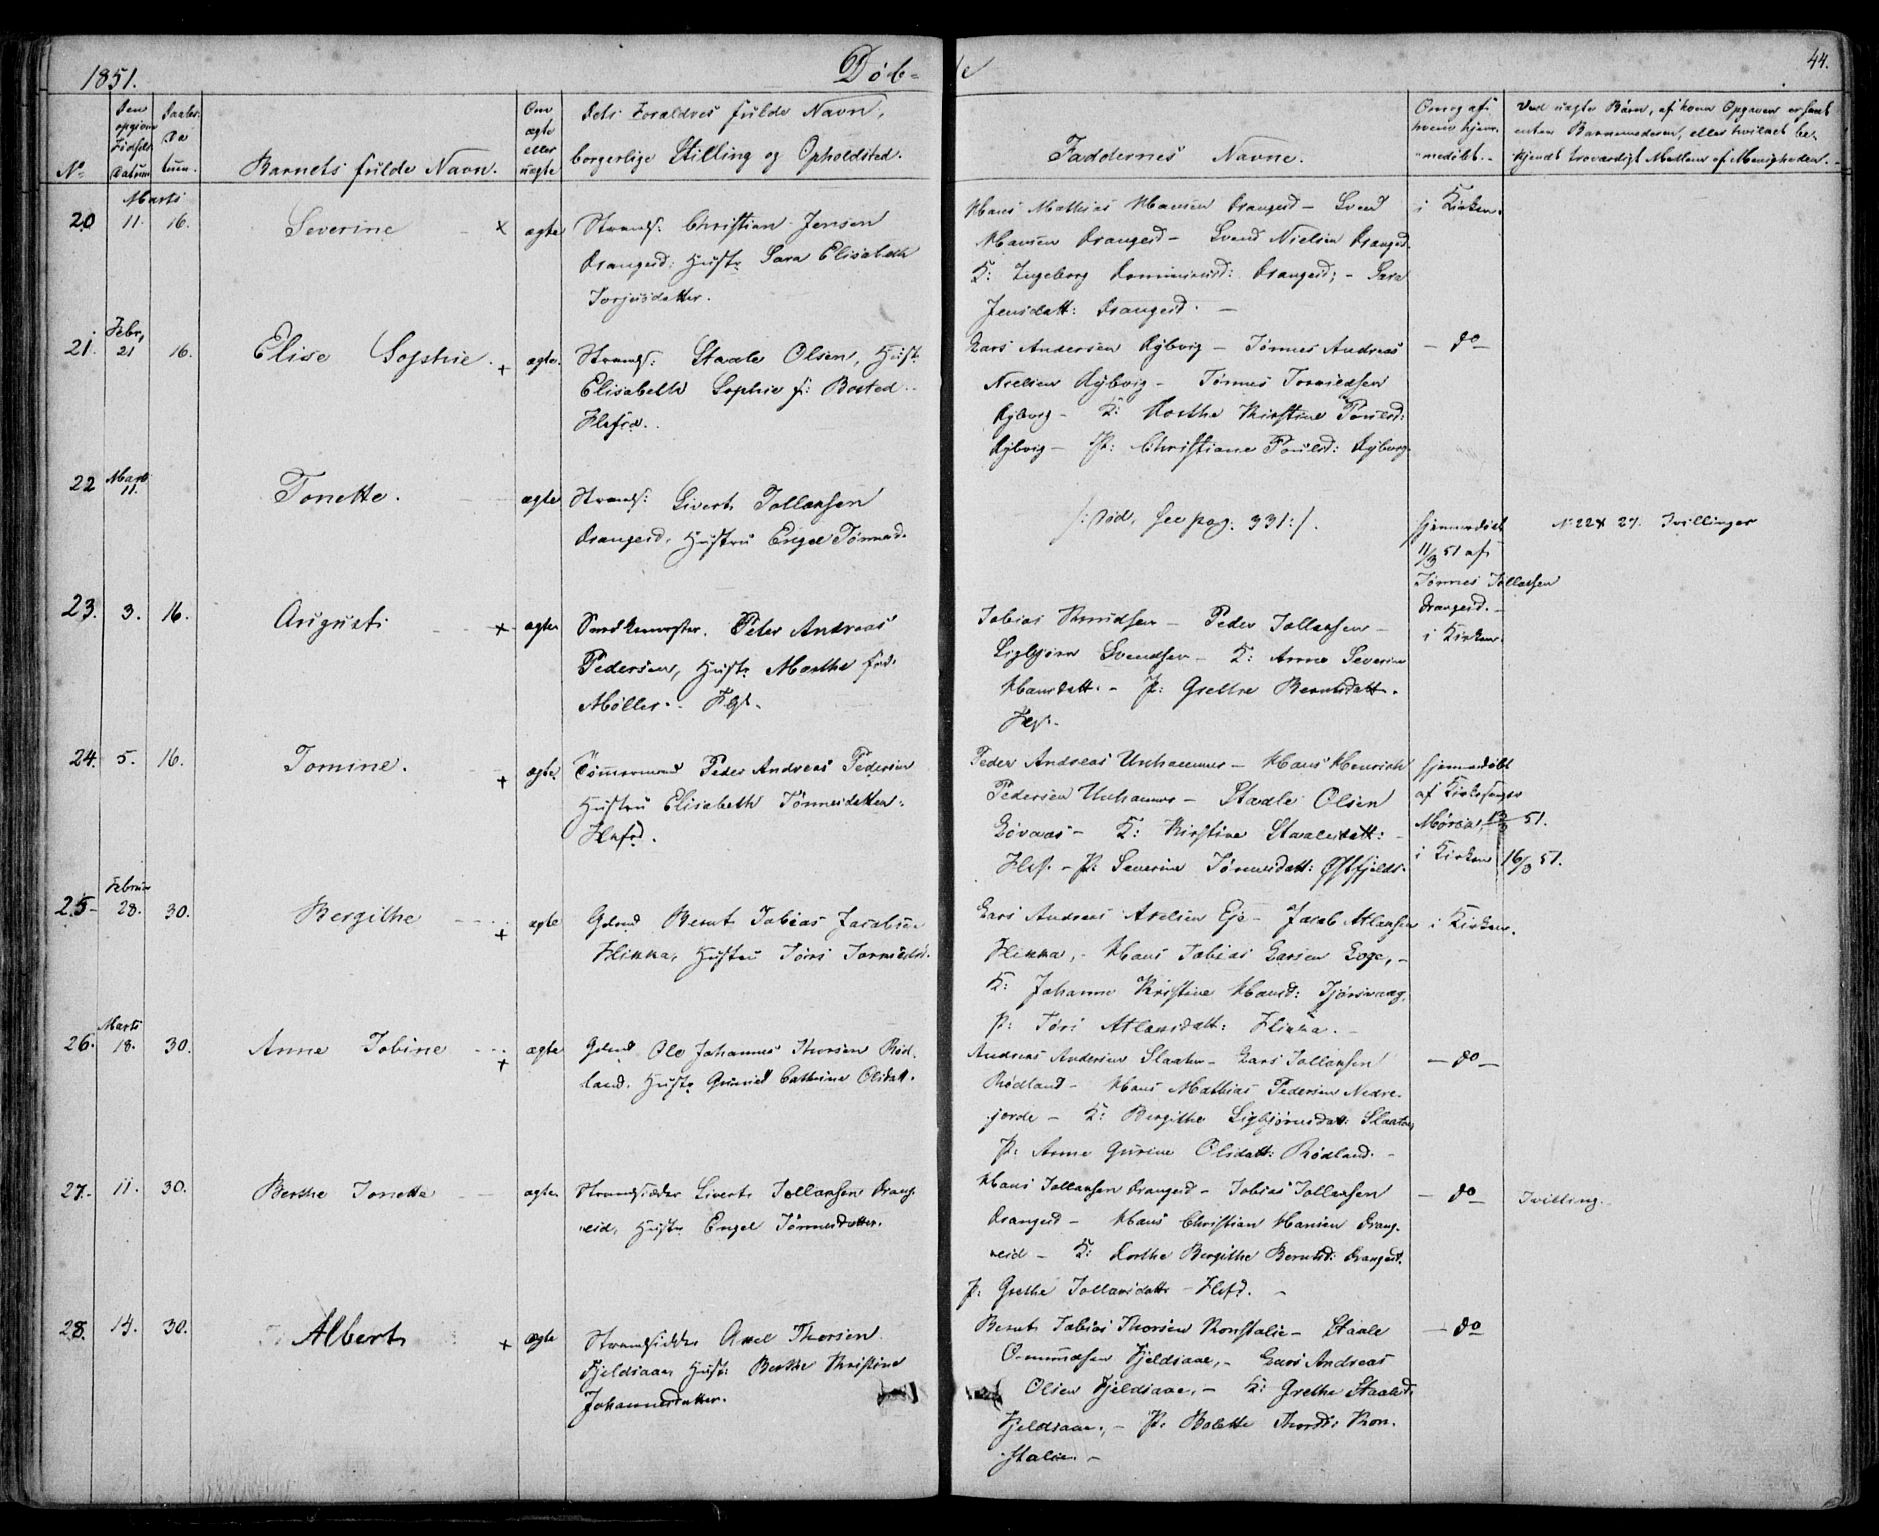 1851.
Døb-
te
44.
No
Den opgivne Fødsels Datum
Daabs Da tum.
Barnets fulde Navn.
Om ægte eller uægte
Dets Forældres fulde Navn,
borgerlige Stilling og Opholdsted.
Faddernes Navne.
Om og af hvem hjem- medøbt.
Ved uægte Børn, af hvem Opgaven er skeet
enten Barnemoderen, eller hvilket be-
kjendt troværdigt Mellem af Menigheden.
Marts
20 11. 16. Severine x ægte Strands: Christian Jensen
Drangeid: Hustr Sara Elisabeth
Torjusdatter.
Hans Mathias Hansen Drangeid - Svend
Hansen Drangeid - Svend Nielsen Drangeid
K: Ingeborg Drangeid; - Sara
Jensdatt: Drangeid. -
i Kirken.
Febr,
21. 21 16. Elise Sophie. + ægte. Strands: Staale Olsen, Hust:
Elisabeth Sophie f: Bosted
Lars Andersen - Tønnes Andreas
Nielsen - Tønnes
- K: Dorthe Kirstine Poulsd:
- P: Christiane Poulsd:
- do -
22 Marts 11. Tonette. ægte Strands: Sivert Tollaksen
Drangeid, Hustru Engel Tønnesd.
/: død, see pag: 331:/.
hjemmedøbt
11/3 51 af
Tønnes Tollaksen
Drangeid. -
No 22 & 27. Tvillinger
23. 3. 16. August + ægte Peter Andreas
Pedersen, Hustr Marthe fød.
Møller.
Tobias Knudsen - Peder Tollaksen -
Sigbjørn Svendsen - K: Anne Severine
Hansdatt. - P: Grethe Berntsdatt.
i Kirken.
24. 5. 16. Tomine. + ægte Tømmermand Peder Andreas Pedersen
Hustru Elisabeth Tønnesdatter:
Peder Andreas Unhammer - Hans Henrich
Pedersen Unhammer - Staale Olsen
- K: Kirstine Staalesdatt:
- P: Severine Tønnesdatt:
hjemmedøbt
af Kirkesanger
51.
i Kirken 16/3 51.
Februar
25 - 28. 30. Bergithe + ægte Gdmd Bernt Tobias Jacobsen
Hikka, Hustru Tøri
Lars Andreas Axelsen Eje - Jacob Atlaksen
Hikka, - Hans Tobias Larsen Ege, -
K: Johanne Kristine Hansd: Tjørsvaag,
P: Tøri Atlaksdatt: Hikka. -
i Kirken.
Marts
26. 18. 30. Anne Tobine + ægte Gdmd Ole Johannes Thorsen Rød-
land. Hustr Cathrine Olsdatt.
Andreas Andersen Slaaten - Lars Tollaksen
Rødland - Hans Mathias Pedersen Nedre-
jorde - K: Bergithe Sigbjørnsdatt: Slaaten
P: Anne Gurine Olsdatt: Rødland. -
- do -
27. 11. 30. Berthe Tonette ægte Strandsidder Sivert Tollaksen Drang-
eid, Hustr Engel Tønnesdatter.
Hans Tollaksen Drangeid - Tobias Tollaksen
Drangeid - Hans Christian Hansen Drang-
eid - K: Dorthe Bergithe Berntsd: Drangeid.
P: Grethe Tollaksdattr -
- do -
Tvilling.
28. 14. 30. Albert + ægte Strandsidder Axel Thorsen
Fjeldsaae, Hust: Berthe Kristine
Johannesdatter.
Bernt Tobias Thorsen Konstalie - Staale
Omundsen Fjeldsaae, - Lars Andreas
Olsen Fjeldsaae, - K: Grethe Staalesd:
Fjeldsaae, - P: Bolette Thorsd: Kon-
stalie. -
- do